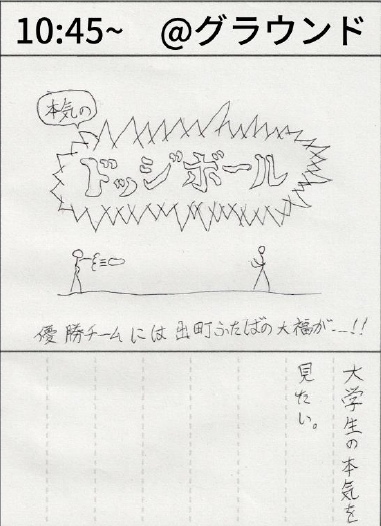 10:45~　@グラウンド
本気の
ドッジボール
優勝チームには出町ふたばの大福が…!!
大学生の本気を
見たい。